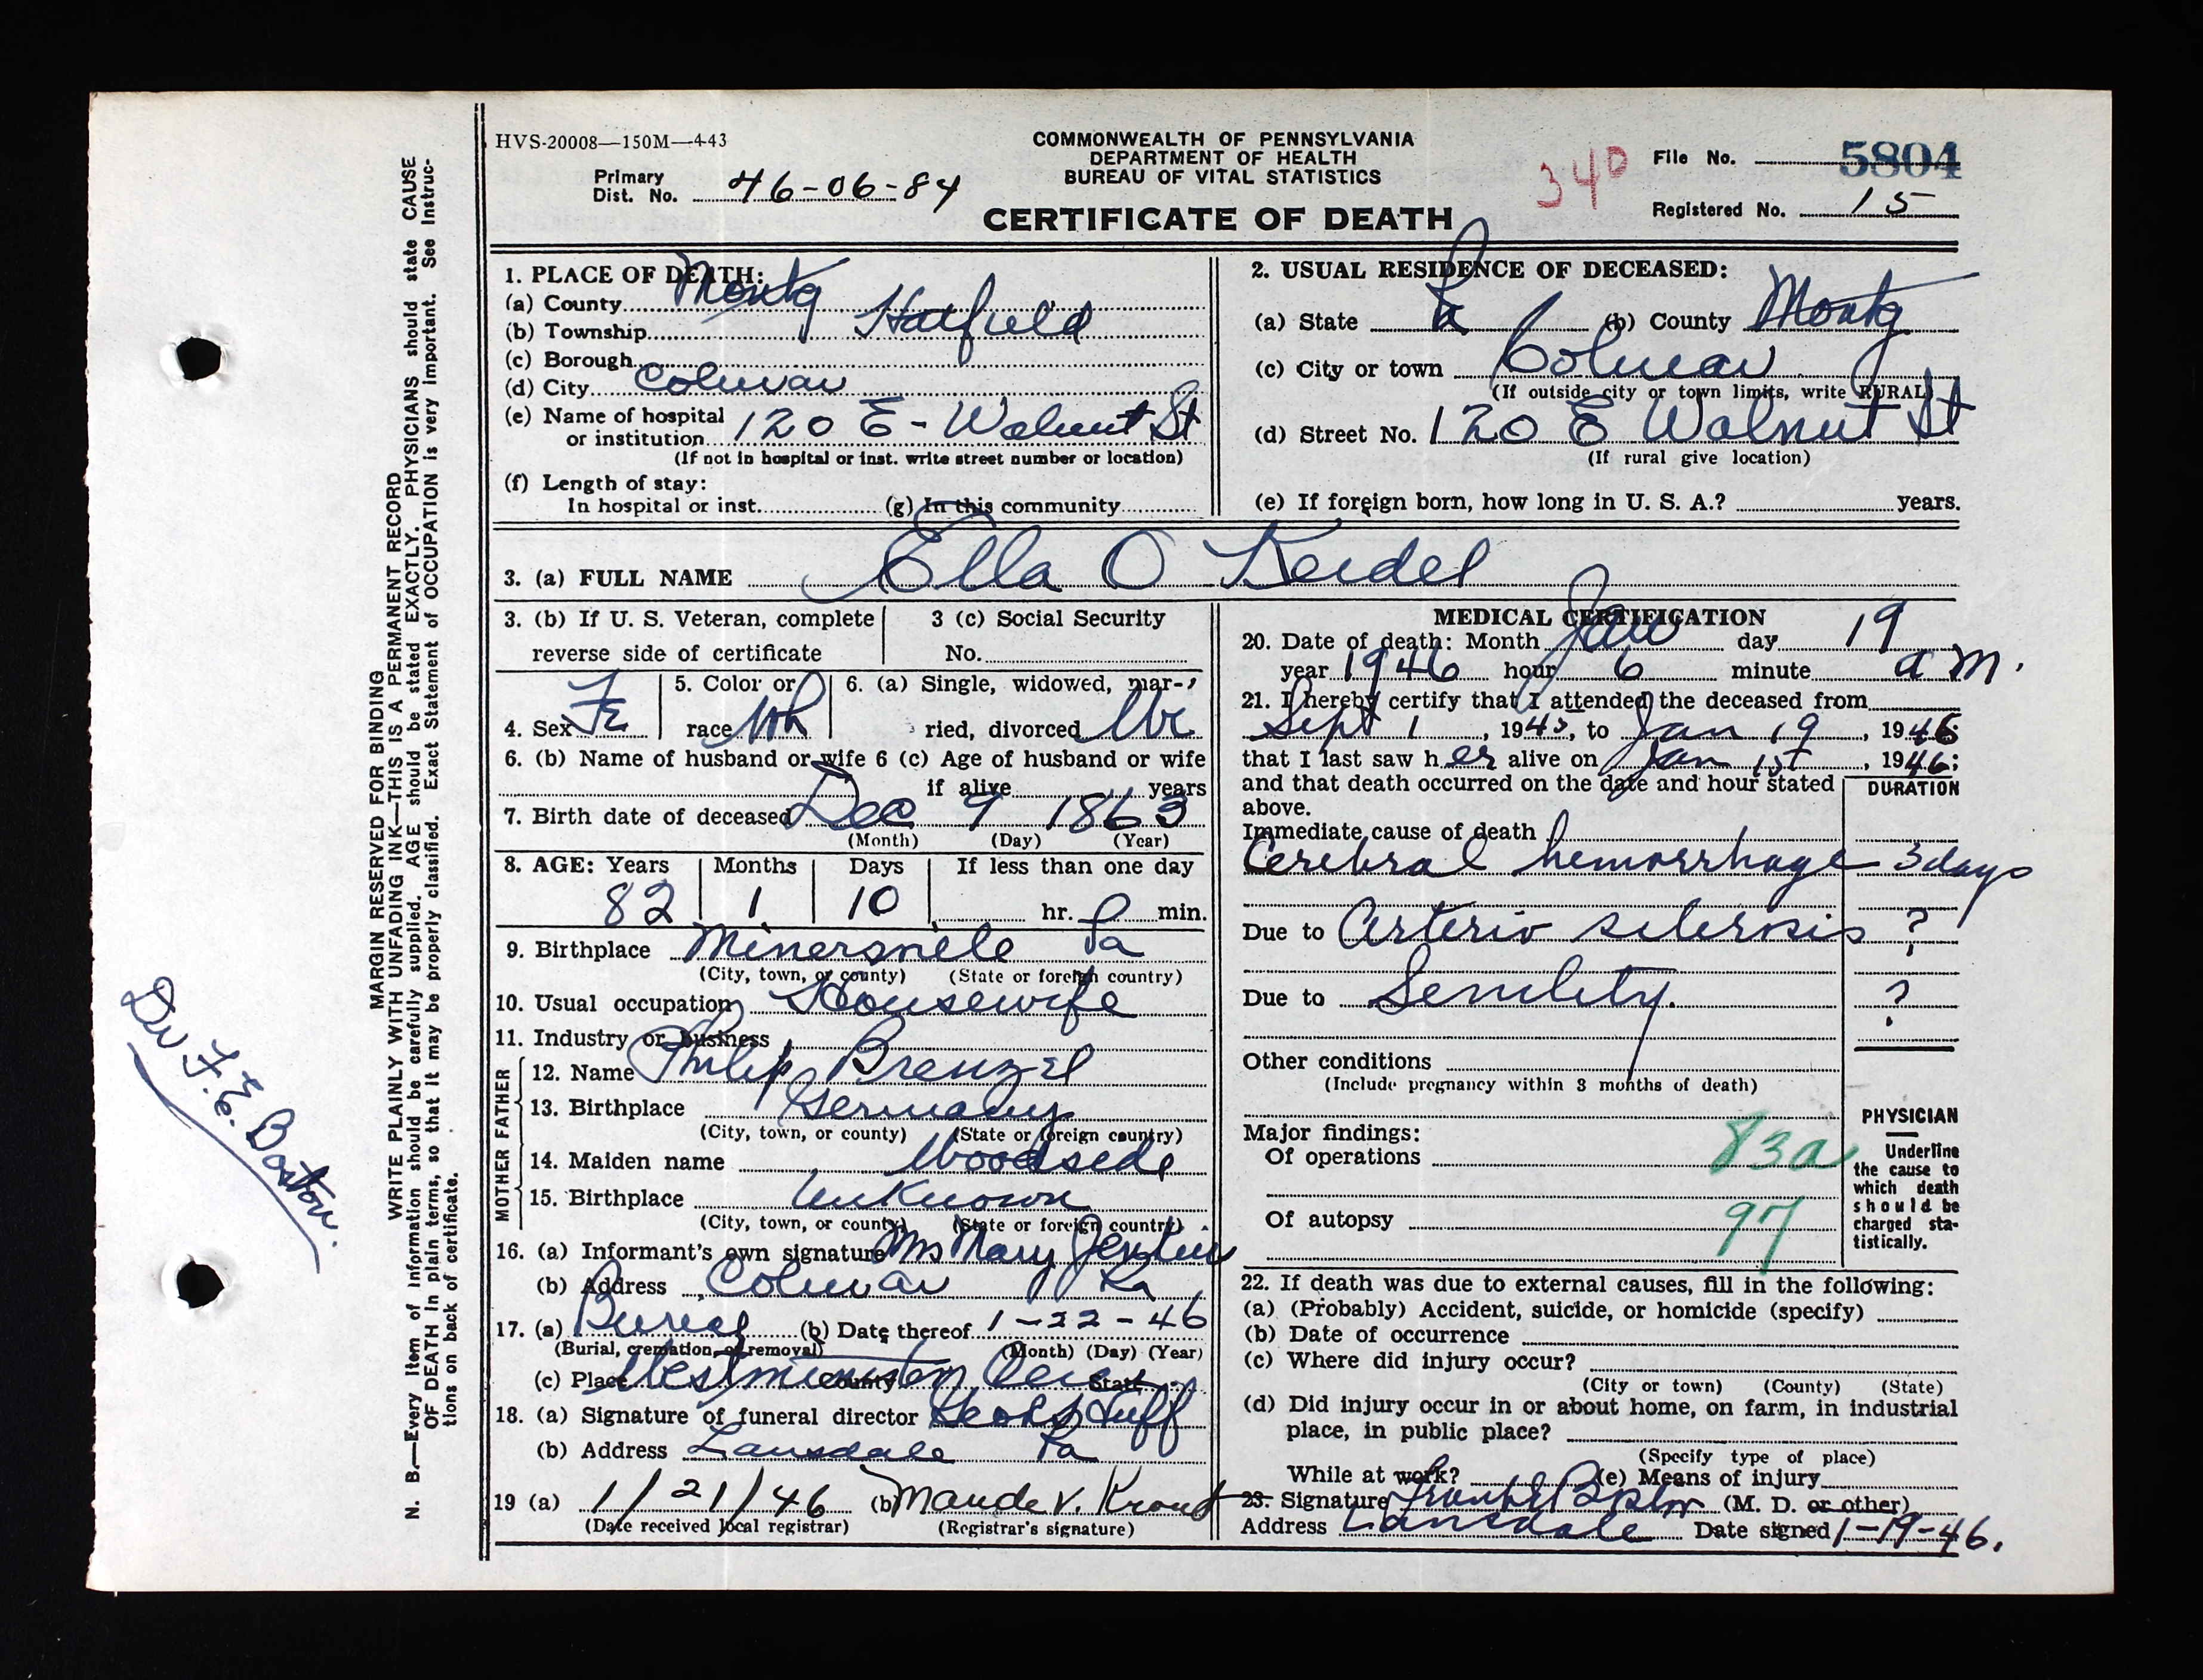 HVS-20008—150M—4-43
COMMONWEALTH OF PENNSYLVANIA
DEPARTMENT OF HEALTH
BUREAU OF VITAL STATISTICS
CERTIFICATE OF DEATH
Primary
Dist. No. 46-06-84
34D
File No. 5804
Registered No. 15
MARGIN RESERVED FOR BINDING
WRITE PLAINLY WITH UNFADING INK—THIS IS A PERMANENT RECORD
N. B.—Every item of information should be carefully supplied. AGE should be stated EXACTLY. PHYSICIANS should state CAUSE
OF DEATH in plain terms, so that it may be properly classified. Exact Statement of OCCUPATION is very important. See Instruc-
tions on back of certificate.
Dr F. E. Boston.
1. PLACE OF DEATH:
(a) County Montg
(b) Township Hatfield
(c) Borough
(d) City Colmar
(e) Name of hospital
or institution 120 E - Walnut St
(If not in hospital or inst. write street number or location)
(f) Length of stay:
In hospital or inst. (g) In this community
2. USUAL RESIDENCE OF DECEASED:
(a) State Pa (b) County Montg
(c) City or town Colmar
(If outside city or town limits, write RURAL)
(d) Street No. 120 E Walnut St
(If rural give location)
(e) If foreign born, how long in U. S. A.? years.
3. (a) FULL NAME Ella O Keidel
3. (b) If U. S. Veteran, complete
reverse side of certificate
3 (c) Social Security
No.
4. Sex Fe
5. Color or
race Wh
6. (a) Single, widowed, mar-
ried, divorced Wi
6. (b) Name of husband or wife 6 (c) Age of husband or wife
if alive years
7. Birth date of deceased Dec 9 1863
(Month) (Day) (Year)
8. AGE: Years Months Days If less than one day
82 1 10 hr. min.
9. Birthplace Minersville Pa
(City, town, or county) (State or foreign country)
10. Usual occupation Housewife
11. Industry or business
FATHER
12. Name Philip Brenzel
13. Birthplace Germany
(City, town, or county) (State or foreign country)
MOTHER
14. Maiden name Woodside
15. Birthplace Unknown
(City, town, or county) (State or foreign country)
16. (a) Informant's own signature Mrs Mary Jenkins
(b) Address Colmar Pa
17. (a) Burial (b) Date thereof 1-22-46
(Burial, cremation, or removal) (Month) (Day) (Year)
(c) Place Westminster County Cem State
18. (a) Signature of funeral director Huff
(b) Address Lansdale Pa
19 (a) 1/21/46 (b) Maude V. Krout
(Date received local registrar) (Registrar's signature)
MEDICAL CERTIFICATION
20. Date of death: Month Jan day 19
year 1946 hour 6 minute a m.
21. I hereby certify that I attended the deceased from
Sept 1, 1945, to Jan 19, 1946;
that I last saw her alive on Jan 1st, 1946;
and that death occurred on the date and hour stated
above.
DURATION
Immediate cause of death
Cerebral hemorrhage 3 days
Due to Arterio sclerosis ?
Due to Senility. ?
Other conditions
(Include pregnancy within 3 months of death)
Major findings:
Of operations 83a
Of autopsy 97
PHYSICIAN
Underline
the cause to
which death
should be
charged sta-
tistically.
22. If death was due to external causes, fill in the following:
(a) (Probably) Accident, suicide, or homicide (specify)
(b) Date of occurrence
(c) Where did injury occur?
(City or town) (County) (State)
(d) Did injury occur in or about home, on farm, in industrial
place, in public place?
(Specify type of place)
While at work? (e) Means of injury
23. Signature Boston (M. D. or other)
Address Lansdale Date signed 1-19-46.